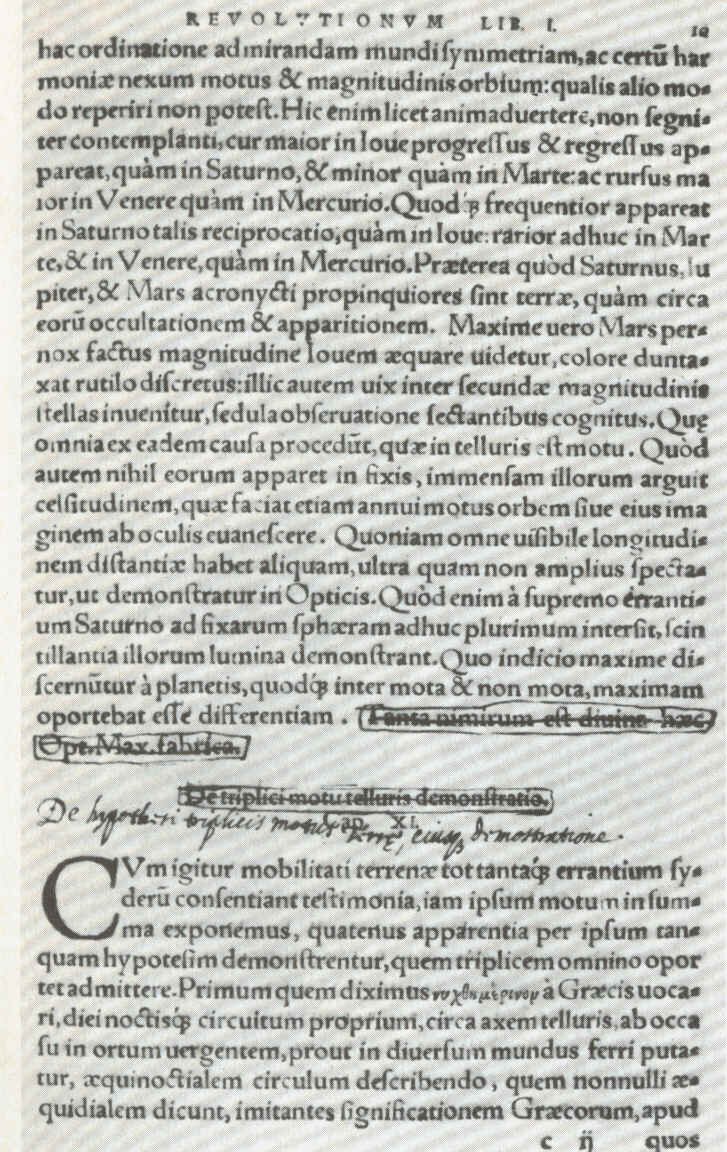 REVOLVTIONVM LIB. I. 10
hac ordinatione admirandam mundi ſymmetriam, ac certũ har
moniæ nexum motus & magnitudinis orbium: qualis alio mo⸗
do reperiri non poteſt. Hic enim licet animaduertere, non ſegni⸗
ter contemplanti, cur maior in Ioue progreſſus & regreſſus ap⸗
pareat, quàm in Saturno, & minor quàm in Marte: ac rurſus ma
ior in Venere quàm in Mercurio. Quodꝙ frequentior appareat
in Saturno talis reciprocatio, quàm in Ioue: rarior adhuc in Mar
te, & in Venere, quàm in Mercurio. Præterea quòd Saturnus, Iu
piter, & Mars acronycti propinquiores ſint terræ, quàm circa
eorũ occultationem & apparitionem. Maxime uero Mars per⸗
nox factus magnitudine Iouem æquare uidetur, colore dunta⸗
xat rutilo diſcretus: illic autem uix inter ſecundæ magnitudinis
ſtellas inuenitur, ſedula obſeruatione ſectantibus cognitus. Quę
omnia ex eadem cauſa procedũt, quæ in telluris eſt motu. Quòd
autem nihil eorum apparet in fixis, immenſam illorum arguit
celſitudinem, quæ faciat etiam annui motus orbem ſiue eius ima
ginem ab oculis euaneſcere. Quoniam omne uiſibile longitudi⸗
nem diſtantiæ habet aliquam, ultra quam non amplius ſpecta⸗
tur, ut demonſtratur in Opticis. Quòd enim à ſupremo erranti⸗
um Saturno ad fixarum ſphæram adhuc plurimum interſit, ſcin
tillantia illorum lumina demonſtrant. Quo indicio maxime di⸗
ſcernũtur à planetis, quodꝙ inter mota & non mota, maximam
oportebat eſſe differentiam. Tanta nimirum eſt diuina hæc
Opt. Max. fabrica.
De triplici motu telluris demonſtratio.
Cap. XI.
De hypothesi triplicis motus terrę, eiusꝙ demonstratione.
CVm igitur mobilitati terrenæ tot tantaꝙ errantium ſy⸗
derũ conſentiant teſtimonia, iam ipſum motum in ſum⸗
ma exponemus, quatenus apparentia per ipſum tan⸗
quam hypoteſim demonſtrentur, quem triplicem omnino opor
tet admittere. Primum quem diximus νυχθημέρινον à Græcis uoca⸗
ri, diei noctisꝙ circuitum proprium, circa axem telluris, ab occa
ſu in ortum uergentem, prout in diuerſum mundus ferri puta⸗
tur, æquinoctialem circulum deſcribendo, quem nonnulli æ⸗
quidialem dicunt, imitantes ſignificationem Græcorum, apud
c ij quos